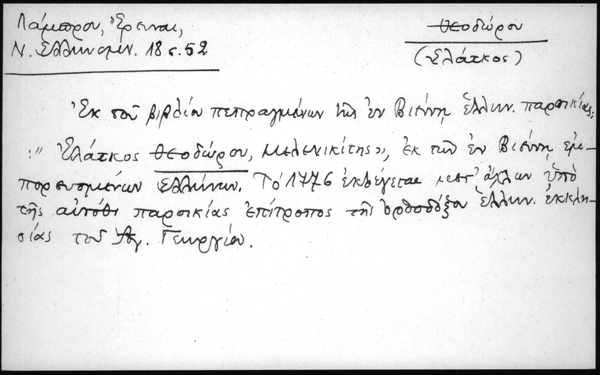 Λάμπρου, Ἔρευναι,
Ν. Ἑλληνομν. 18 σ. 52
Θεοδώρου
(Σλάτκος)
Ἐκ τοῦ βιβλίου πεπραγμένων τῆς ἐν Βιέννῃ ἑλλην. παροικίας:
:" Σλάτκος Θεοδώρου, Μελενικίτης», ἐκ τῶν ἐν Βιέννῃ ἐμ-
πορευομένων Ἑλλήνων. Τό 1776 ἐκλέγεται μετ' ἄλλων ὑπό
τῆς αὐτόθι παροικίας ἐπίτροπος τῆς ὀρθοδόξου ἑλλην. ἐκκλη-
σίας τοῦ Ἁγ. Γεωργίου.